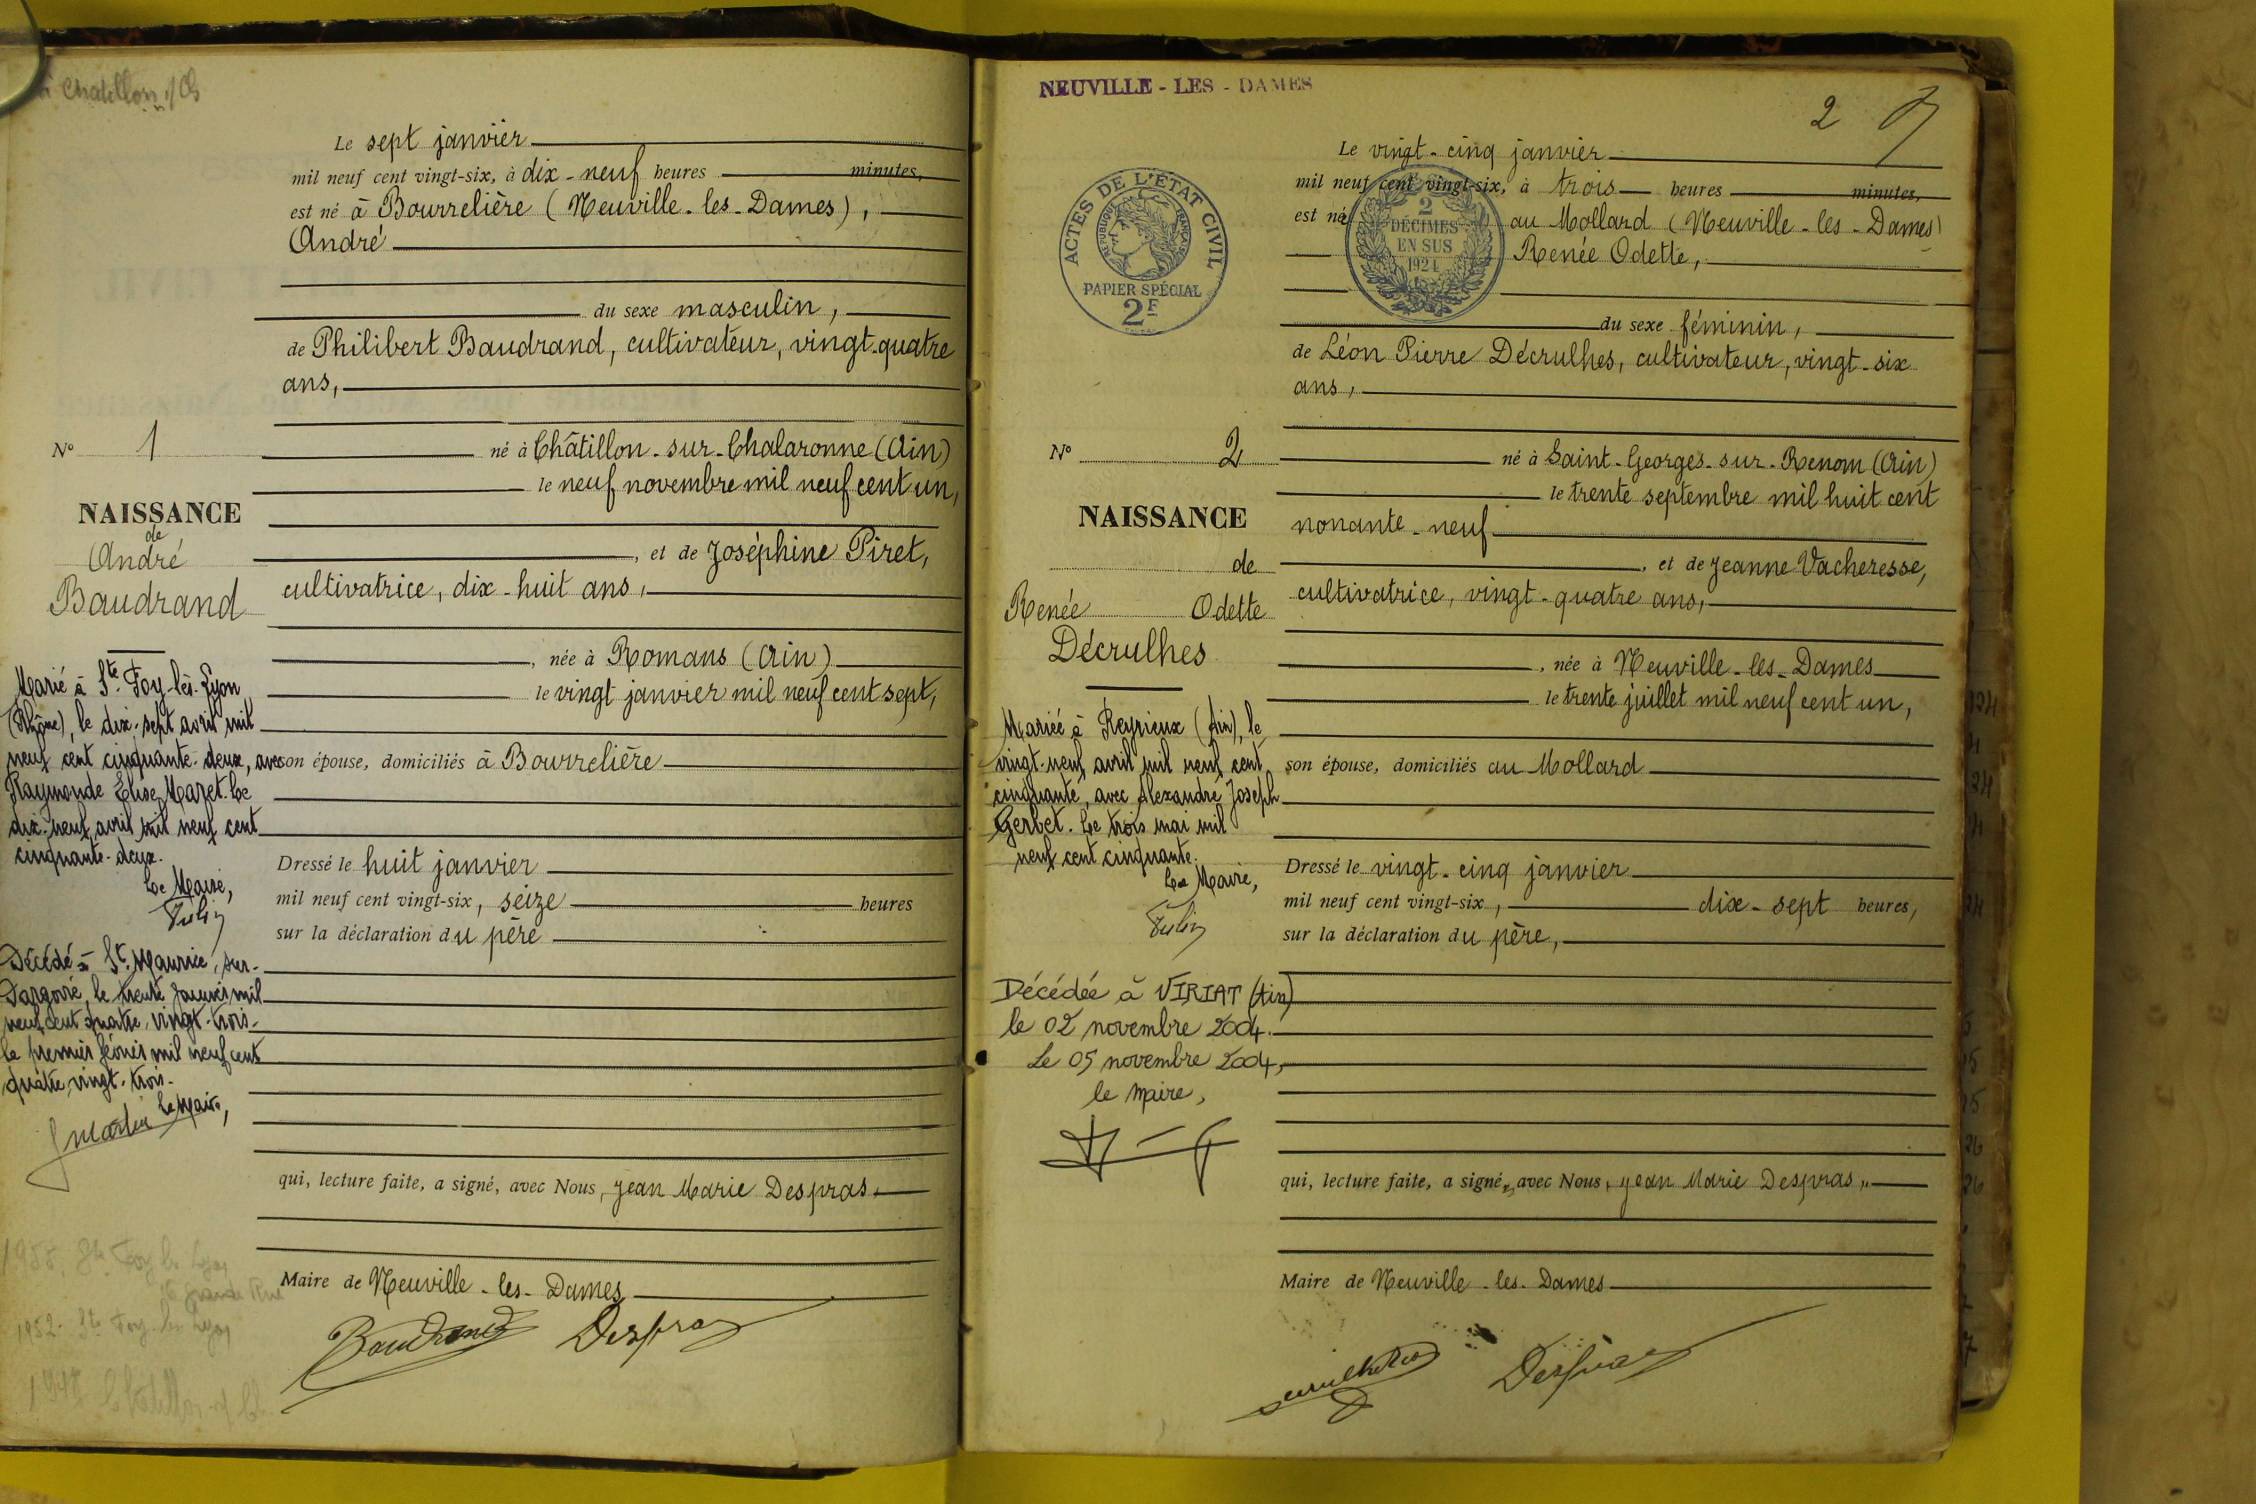 à Chatillon s/Ch
Le sept janvier
mil neuf cent vingt-six, à dix-neuf heures minutes,
est né à Bourrelière (Neuville-les-Dames),
André
du sexe masculin,
de Philibert Baudrand, cultivateur, vingt-quatre
ans,
né à Châtillon-sur-Chalaronne (Ain)
le neuf novembre mil neuf cent un,
, et de Joséphine Piret,
cultivatrice, dix-huit ans,
, née à Romans (Ain)
le vingt janvier mil neuf cent sept,
son épouse, domiciliés à Bourrelière
Dressé le huit janvier
mil neuf cent vingt-six, seize heures
sur la déclaration du père
qui, lecture faite, a signé, avec Nous, Jean Marie Despras,
Maire de Neuville-les-Dames
Baudrand Despras
N° 1
NAISSANCE
de
André
Baudrand
Marié à Ste Foy-lès-Lyon
(Rhône), le dix-sept avril mil
neuf cent cinquante-deux, avec
Raymonde Elise Mazet. Le
dix-neuf avril mil neuf cent
cinquante-deux.
Le Maire,
Décédé à St Maurice, sur-
Dargoire, le trente janvier mil
neuf cent quatre-vingt-trois-
Le premier février mil neuf cent
quatre-vingt-trois-
Le Maire,
1952. Ste Foy les Lyon
NEUVILLE - LES - DAMES
2
ACTES DE L'ÉTAT CIVIL
RÉPUBLIQUE FRANÇAISE
PAPIER SPÉCIAL
2F
2
DÉCIMES
EN SUS
1924
Le vingt-cinq janvier
mil neuf cent vingt-six, à trois heures minutes,
est née au Mollard (Neuville-les-Dames)
Renée Odette,
du sexe féminin,
de Léon Pierre Décrulhes, cultivateur, vingt-six
ans,
né à Saint-Georges-sur-Renom (Ain)
le trente septembre mil huit cent
nonante-neuf
, et de Jeanne Vacheresse,
cultivatrice, vingt-quatre ans,
, née à Neuville-les-Dames
le trente juillet mil neuf cent un,
son épouse, domiciliés au Mollard
Dressé le vingt-cinq janvier
mil neuf cent vingt-six, dix-sept heures,
sur la déclaration du père,
qui, lecture faite, a signé, avec Nous, Jean Marie Despras,
Maire de Neuville-les-Dames
Despras
N° 2
NAISSANCE
de
Renée Odette
Décrulhes
Mariée à Reyrieux (Ain), le
vingt-neuf avril mil neuf cent
cinquante, avec Alexandre Joseph
Gerbet. Le trois mai mil
neuf cent cinquante.
Le Maire,
Décédée à VIRIAT (Ain)
le 02 novembre 2004.
Le 05 novembre 2004,
le Maire,